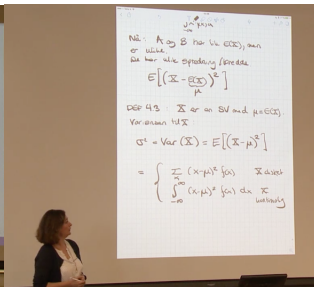 ∫ x f(x) dx
-∞
Nå: A og B har lik E(X), men
er ulike
De har ulik spredning / bredde
E[(X - E(X))²]
μ
DEF 4.3: X er en SV med μ = E(X).
Variansen til X
σ² = Var(X) = E[(X-μ)²]
= { Σ (x-μ)² f(x) X diskret
x
∫ (x-μ)² f(x) dx X
-∞ ∞ kontinuerlig